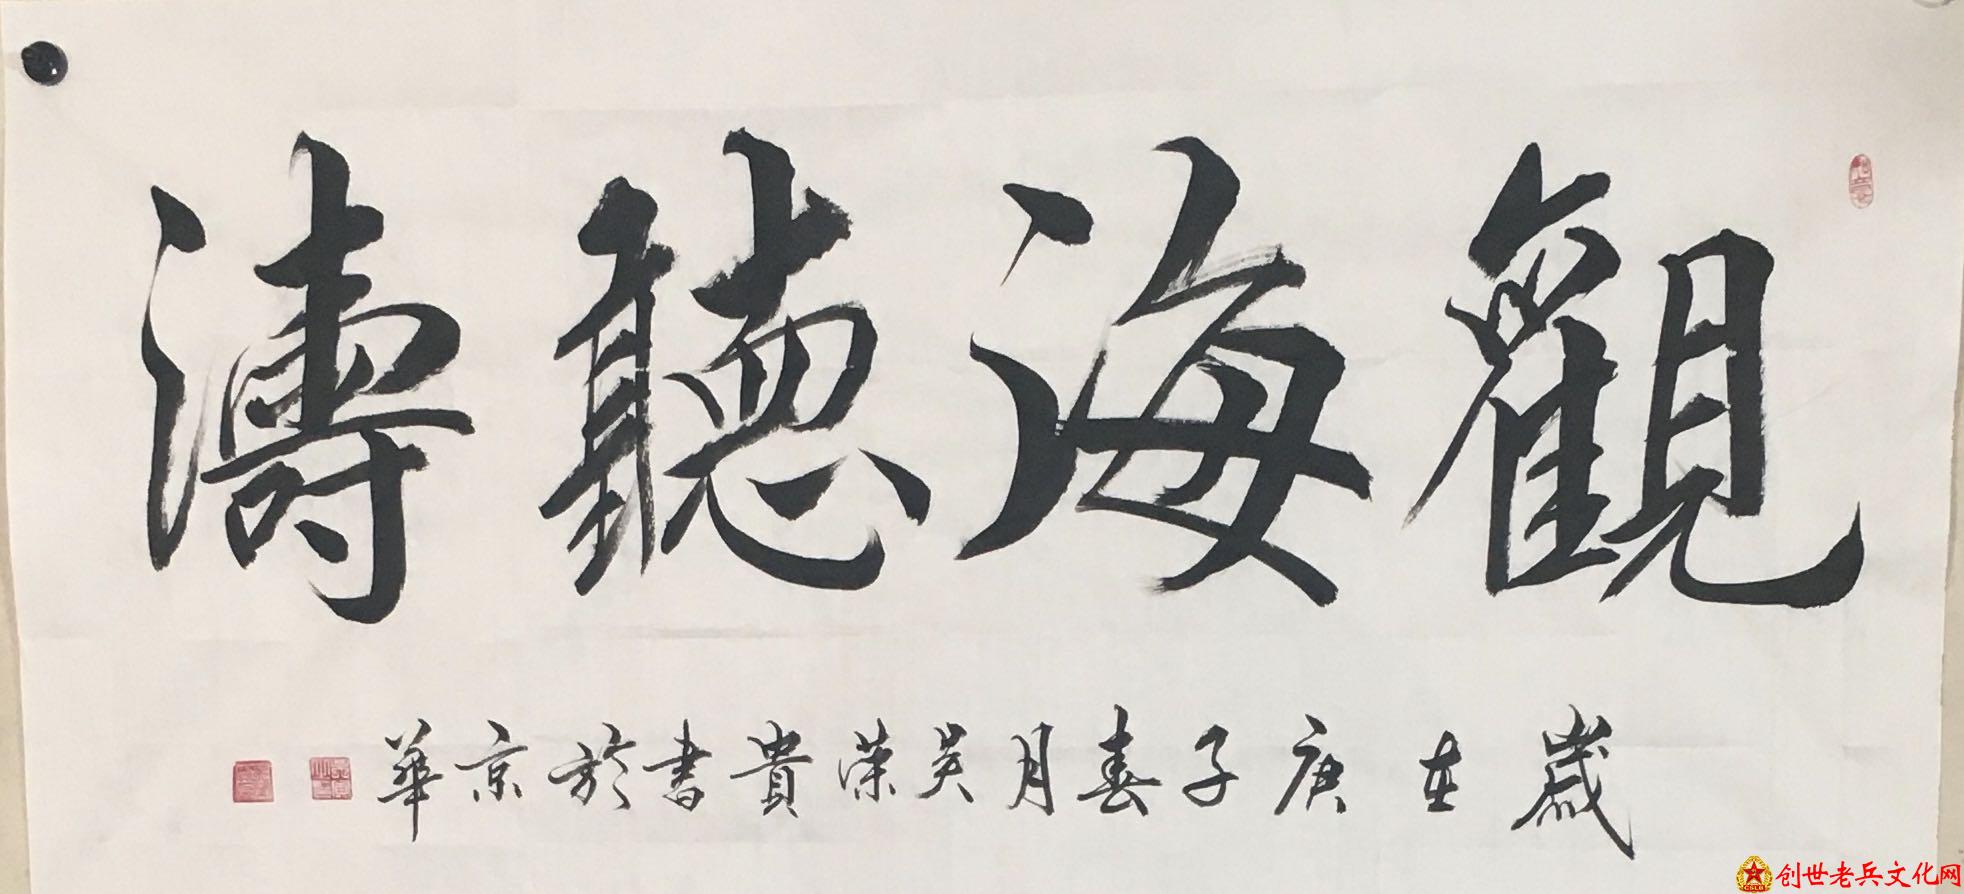 觀海聽濤
歲在庚子春月吴荣貴書於京華
创世老兵文化网